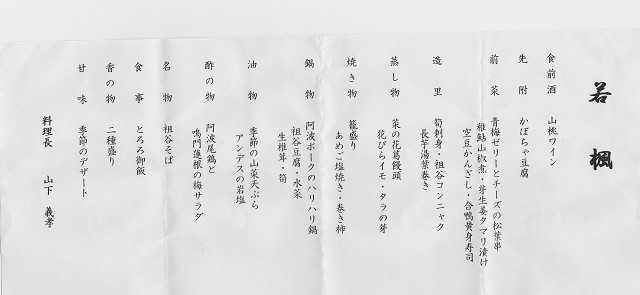 若楓
食前酒 山桃ワイン
先附 かぼちゃ豆腐
前菜 青梅ゼリーとチーズの松葉串
稚鮎山椒煮・芽生姜タマリ漬け
空豆かんざし・合鴨黄身寿司
造里 筍刺身・祖谷コンニャク
長芋湯葉巻き
蒸し物 菜の花葛饅頭
花びらイモ・タラの芽
焼き物 籠盛り
あめご塩焼き・巻き柿
鍋物 阿波ポークのハリハリ鍋
祖谷豆腐・水菜
生椎茸・筍
油物 季節の山菜天ぷら
アンデスの岩塩
酢の物 阿波尾鶏と
鳴門蓮根の梅サラダ
名物 祖谷そば
食事 とろろ御飯
香の物 二種盛り
甘味 季節のデザート
料理長 山下 義孝